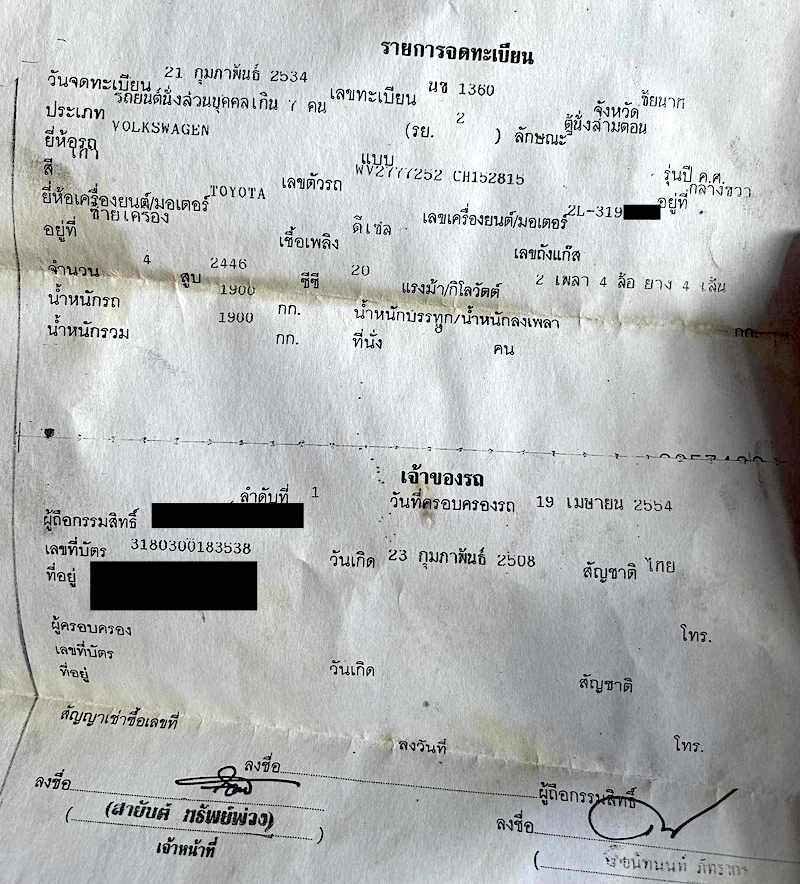 รายการจดทะเบียน
วันจดทะเบียน 21 กุมภาพันธ์ 2534 เลขทะเบียน นข 1360 จังหวัด ชัยนาท
ประเภท รถยนต์นั่งส่วนบุคคลเกิน 7 คน (รย. 2 ) ลักษณะ ตู้นั่งสามตอน
ยี่ห้อรถ VOLKSWAGEN แบบ รุ่นปี ค.ศ.
สี เทา เลขตัวรถ WV2777252 CH152815 อยู่ที่ กลางขวา
ยี่ห้อเครื่องยนต์/มอเตอร์ TOYOTA เลขเครื่องยนต์/มอเตอร์ 2L-319
อยู่ที่ ซ้ายเครื่อง เชื้อเพลิง ดีเซล เลขถังแก๊ส
จำนวน 4 สูบ 2446 ซีซี 20 แรงม้า/กิโลวัตต์ 2 เพลา 4 ล้อ ยาง 4 เส้น
น้ำหนักรถ 1900 กก. น้ำหนักบรรทุก/น้ำหนักลงเพลา กก.
น้ำหนักรวม 1900 กก. ที่นั่ง คน
เจ้าของรถ
ลำดับที่ 1 วันที่ครอบครองรถ 19 เมษายน 2554
ผู้ถือกรรมสิทธิ์
เลขที่บัตร 3180300183538 วันเกิด 23 กุมภาพันธ์ 2508 สัญชาติ ไทย
ที่อยู่
ผู้ครอบครอง โทร.
เลขที่บัตร วันเกิด สัญชาติ
ที่อยู่
สัญญาเช่าซื้อเลขที่ ลงวันที่ โทร.
ลงชื่อ ผู้ถือกรรมสิทธิ์
ลงชื่อ ลงชื่อ
(สายันต์ ทรัพย์พ่วง)
เจ้าหน้าที่